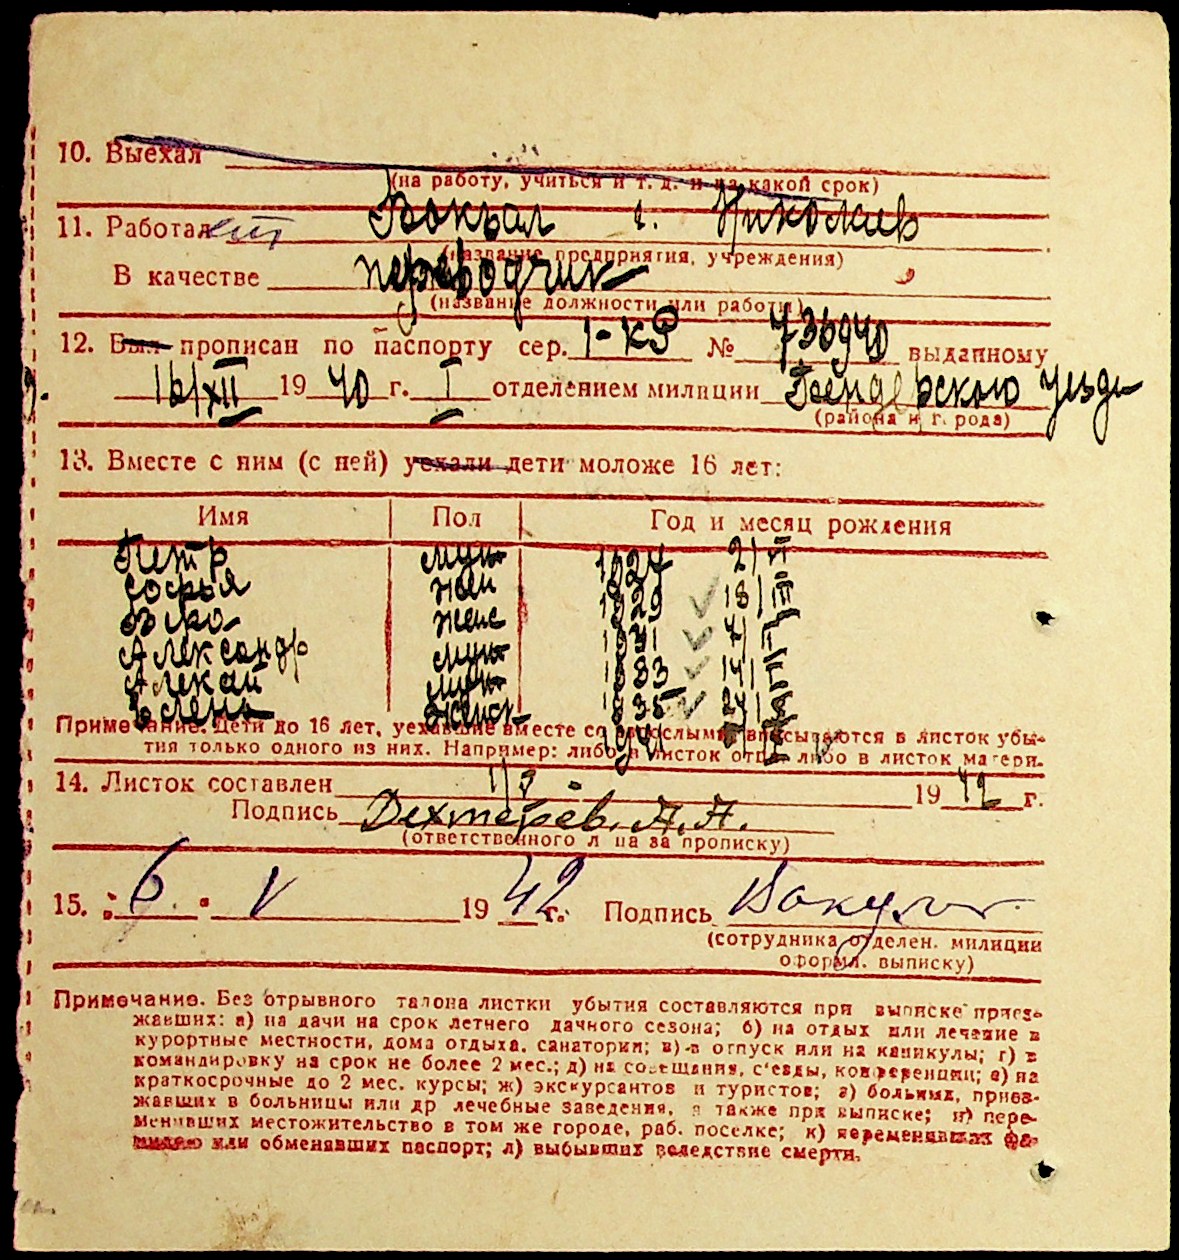 10. Выехал
(на работу, учиться и т. д. и на какой срок)
11. Работает Вокзал г. Николаев
(название предприятия, учреждения)
В качестве переводчик
(название должности или работы)
12. Был прописан по паспорту сер. 1-КР № 736940 выданному
16/XII 1940 г. I отделением милиции Бендерского уезда
(района и города)
13. Вместе с ним (с ней) уехали дети моложе 16 лет:
Имя Пол Год и месяц рождения
Петр муж 1927
Софья жен 1929 18/III
женс 1931
Александр муж 1933
Алексей муж 1935
Елена женск 1941
Примечание. Дети до 16 лет, уехавшие вместе со взрослыми, вписываются в листок убы-
тия только одного из них. Например: либо в листок отца либо в листок матери.
14. Листок составлен 1942 г.
Подпись Дехтерёв. А. А.
(ответственного лица за прописку)
15. „6" V 1942 г. Подпись
(сотрудника отделен. милиции
оформл. выписку)
Примечание. Без отрывного талона листки убытия составляются при выписке приез-
жавших: а) на дачи на срок летнего дачного сезона; б) на отдых или лечение в
курортные местности, дома отдыха, санатории; в) в отпуск или на каникулы; г) в
командировку на срок не более 2 мес.; д) на совещания, с'езды, конференции; е) на
краткосрочные до 2 мес. курсы; ж) экскурсантов и туристов; з) больных, приез-
жавших в больницы или др лечебные заведения, а также при выписке; и) пере-
менивших местожительство в том же городе, раб. поселке; к) переменивших фа-
милию или обменявших паспорт; л) выбывших вследствие смерти.